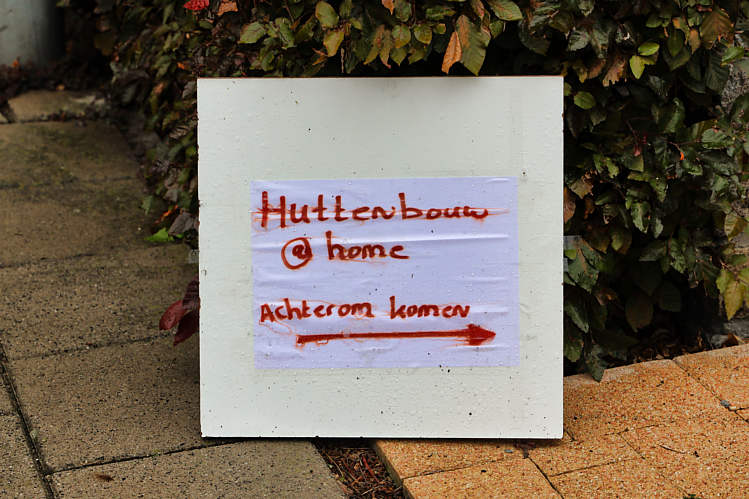 Huttenbouw
@ home
Achterom komen